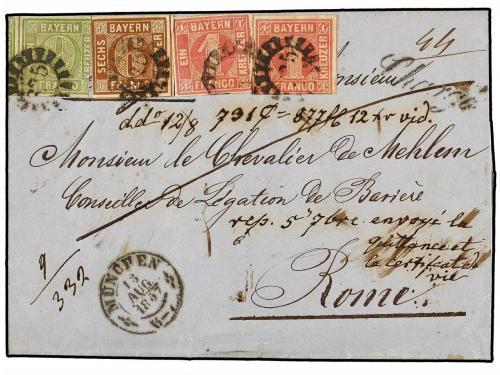 BAYERN BAYERN BAYERN BAYERN
SECHS KREUZER EIN KREUZER KREUZER
FRANCO FRANCO FRANCO FRANCO
44
Chargé
Monsieur
12/8 731 12 xr vid.
Monsieur le Chevalier de Mehlem
Conseiller de Légation de Bavière
rep. 5 7bre. envoyé la
quittance et
le certificat de
vie
9/332
MÜNCHEN
13
AUG.
Rome